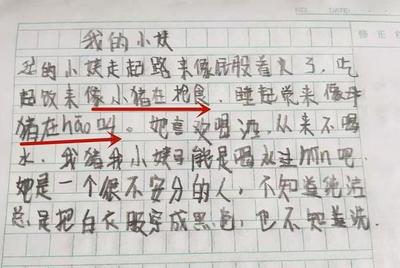 NO. DATE
我的小姨
我的小姨走起路来像屁股着火了，吃
起饭来像小猪在抢食，睡起觉来像母
猪在hāo叫。她喜欢喝酒，从来不喝
水，我猪我小姨可能是喝从过hīn吧，
她是一个很不安分的人，不知道纯洁
总是把白衣服穿成黑色，也不知道洗.